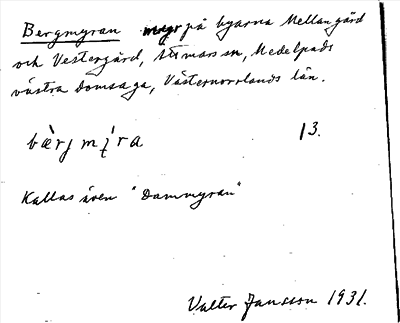 Bergmyran myr på byarna Mellangård
och Vestergård, Attmars sn, Medelpads
västra domsaga, Västernorrlands län.
bæ̀rj mỉ́ra 13.
Kallas även "Dammyran"
Valter Jansson 1931.